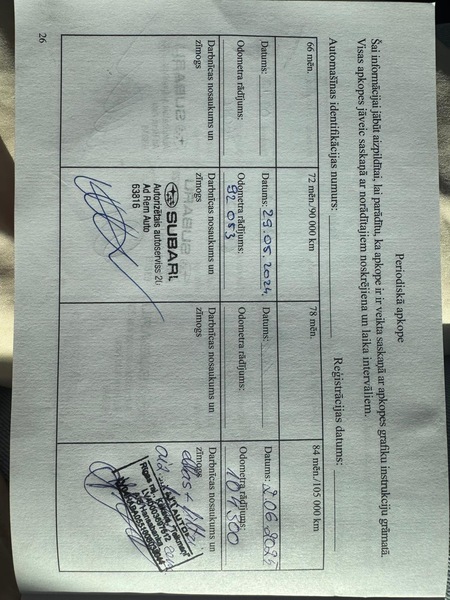 Periodiskā apkope
Šai informācijai jābūt aizpildītai, lai parādītu, ka apkope ir ir veikta saskaņā ar apkopes grafiku instrukciju grāmatā.
Visas apkopes jāveic saskaņā ar norādītajiem noskrējiena un laika intervāliem.
Automašīnas identifikācijas numurs:
Reģistrācijas datums:
66 mēn.
Datums:
Odometra rādījums:
Darbnīcas nosaukums un
zīmogs
72 mēn./90 000 km
Datums: 29.05.2024.
Odometra rādījums:
92 053
Darbnīcas nosaukums un
zīmogs
SUBARU
Autorizētais autoserviss
Ad Rem Auto
63816
78 mēn.
Datums:
Odometra rādījums:
Darbnīcas nosaukums un
zīmogs
84 mēn./105 000 km
Datums: 2.06.2025
Odometra rādījums:
104500
Darbnīcas nosaukums un
zīmogs
26